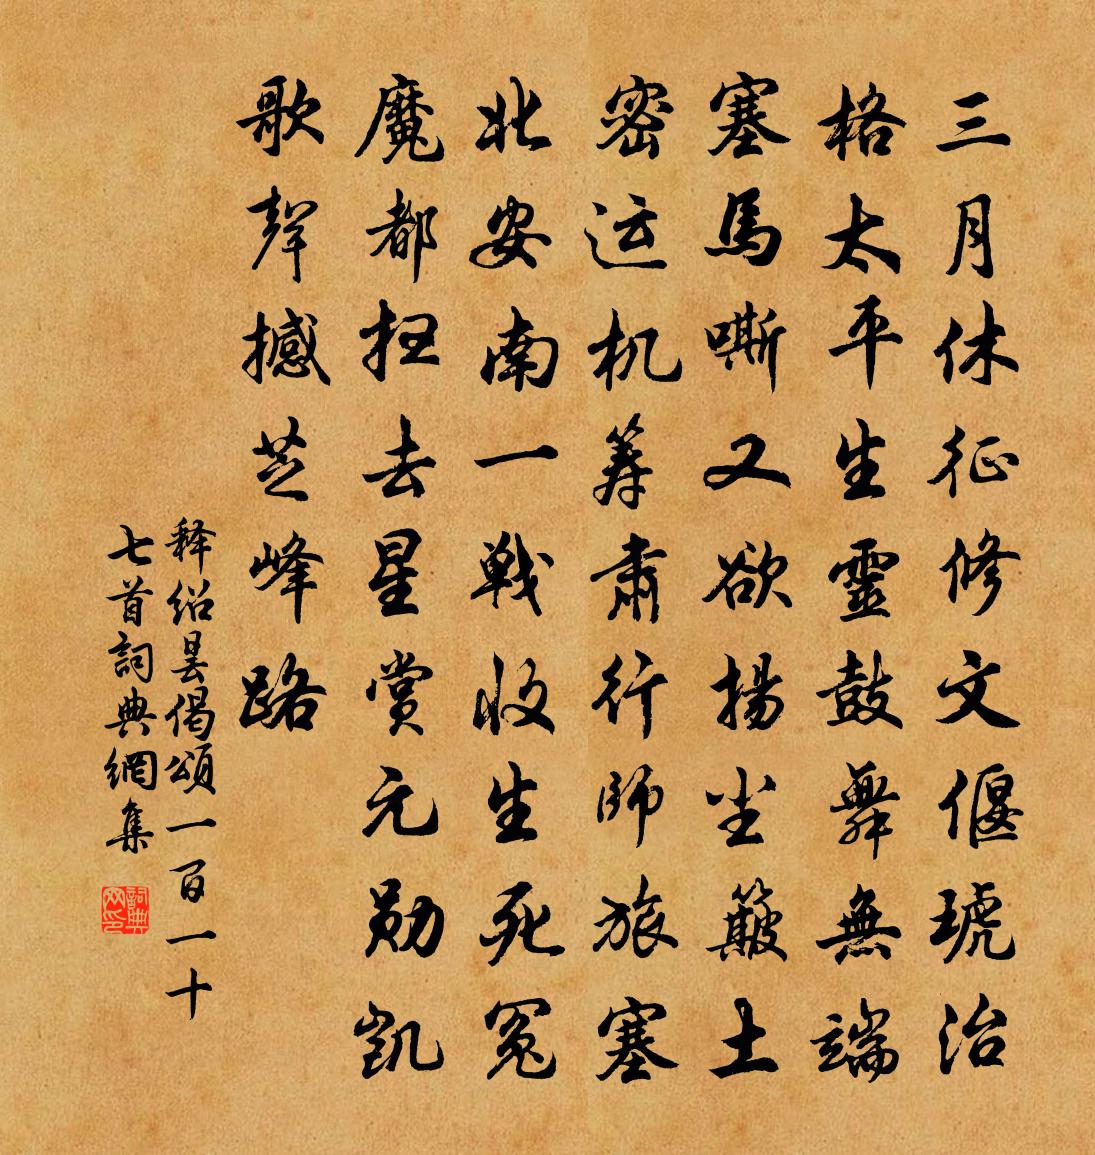 三月休征修文偃琥治
格太平生靈鼓舞無端
塞馬嘶又欲揚尘簸土
密运机筹肃行師旅塞
北安南一戦收生死冤
魔都扫去星赏元勋凱
歌聲撼芝峰路
释绍昙偈頌一百一十
七首詞典網集
詞典网印